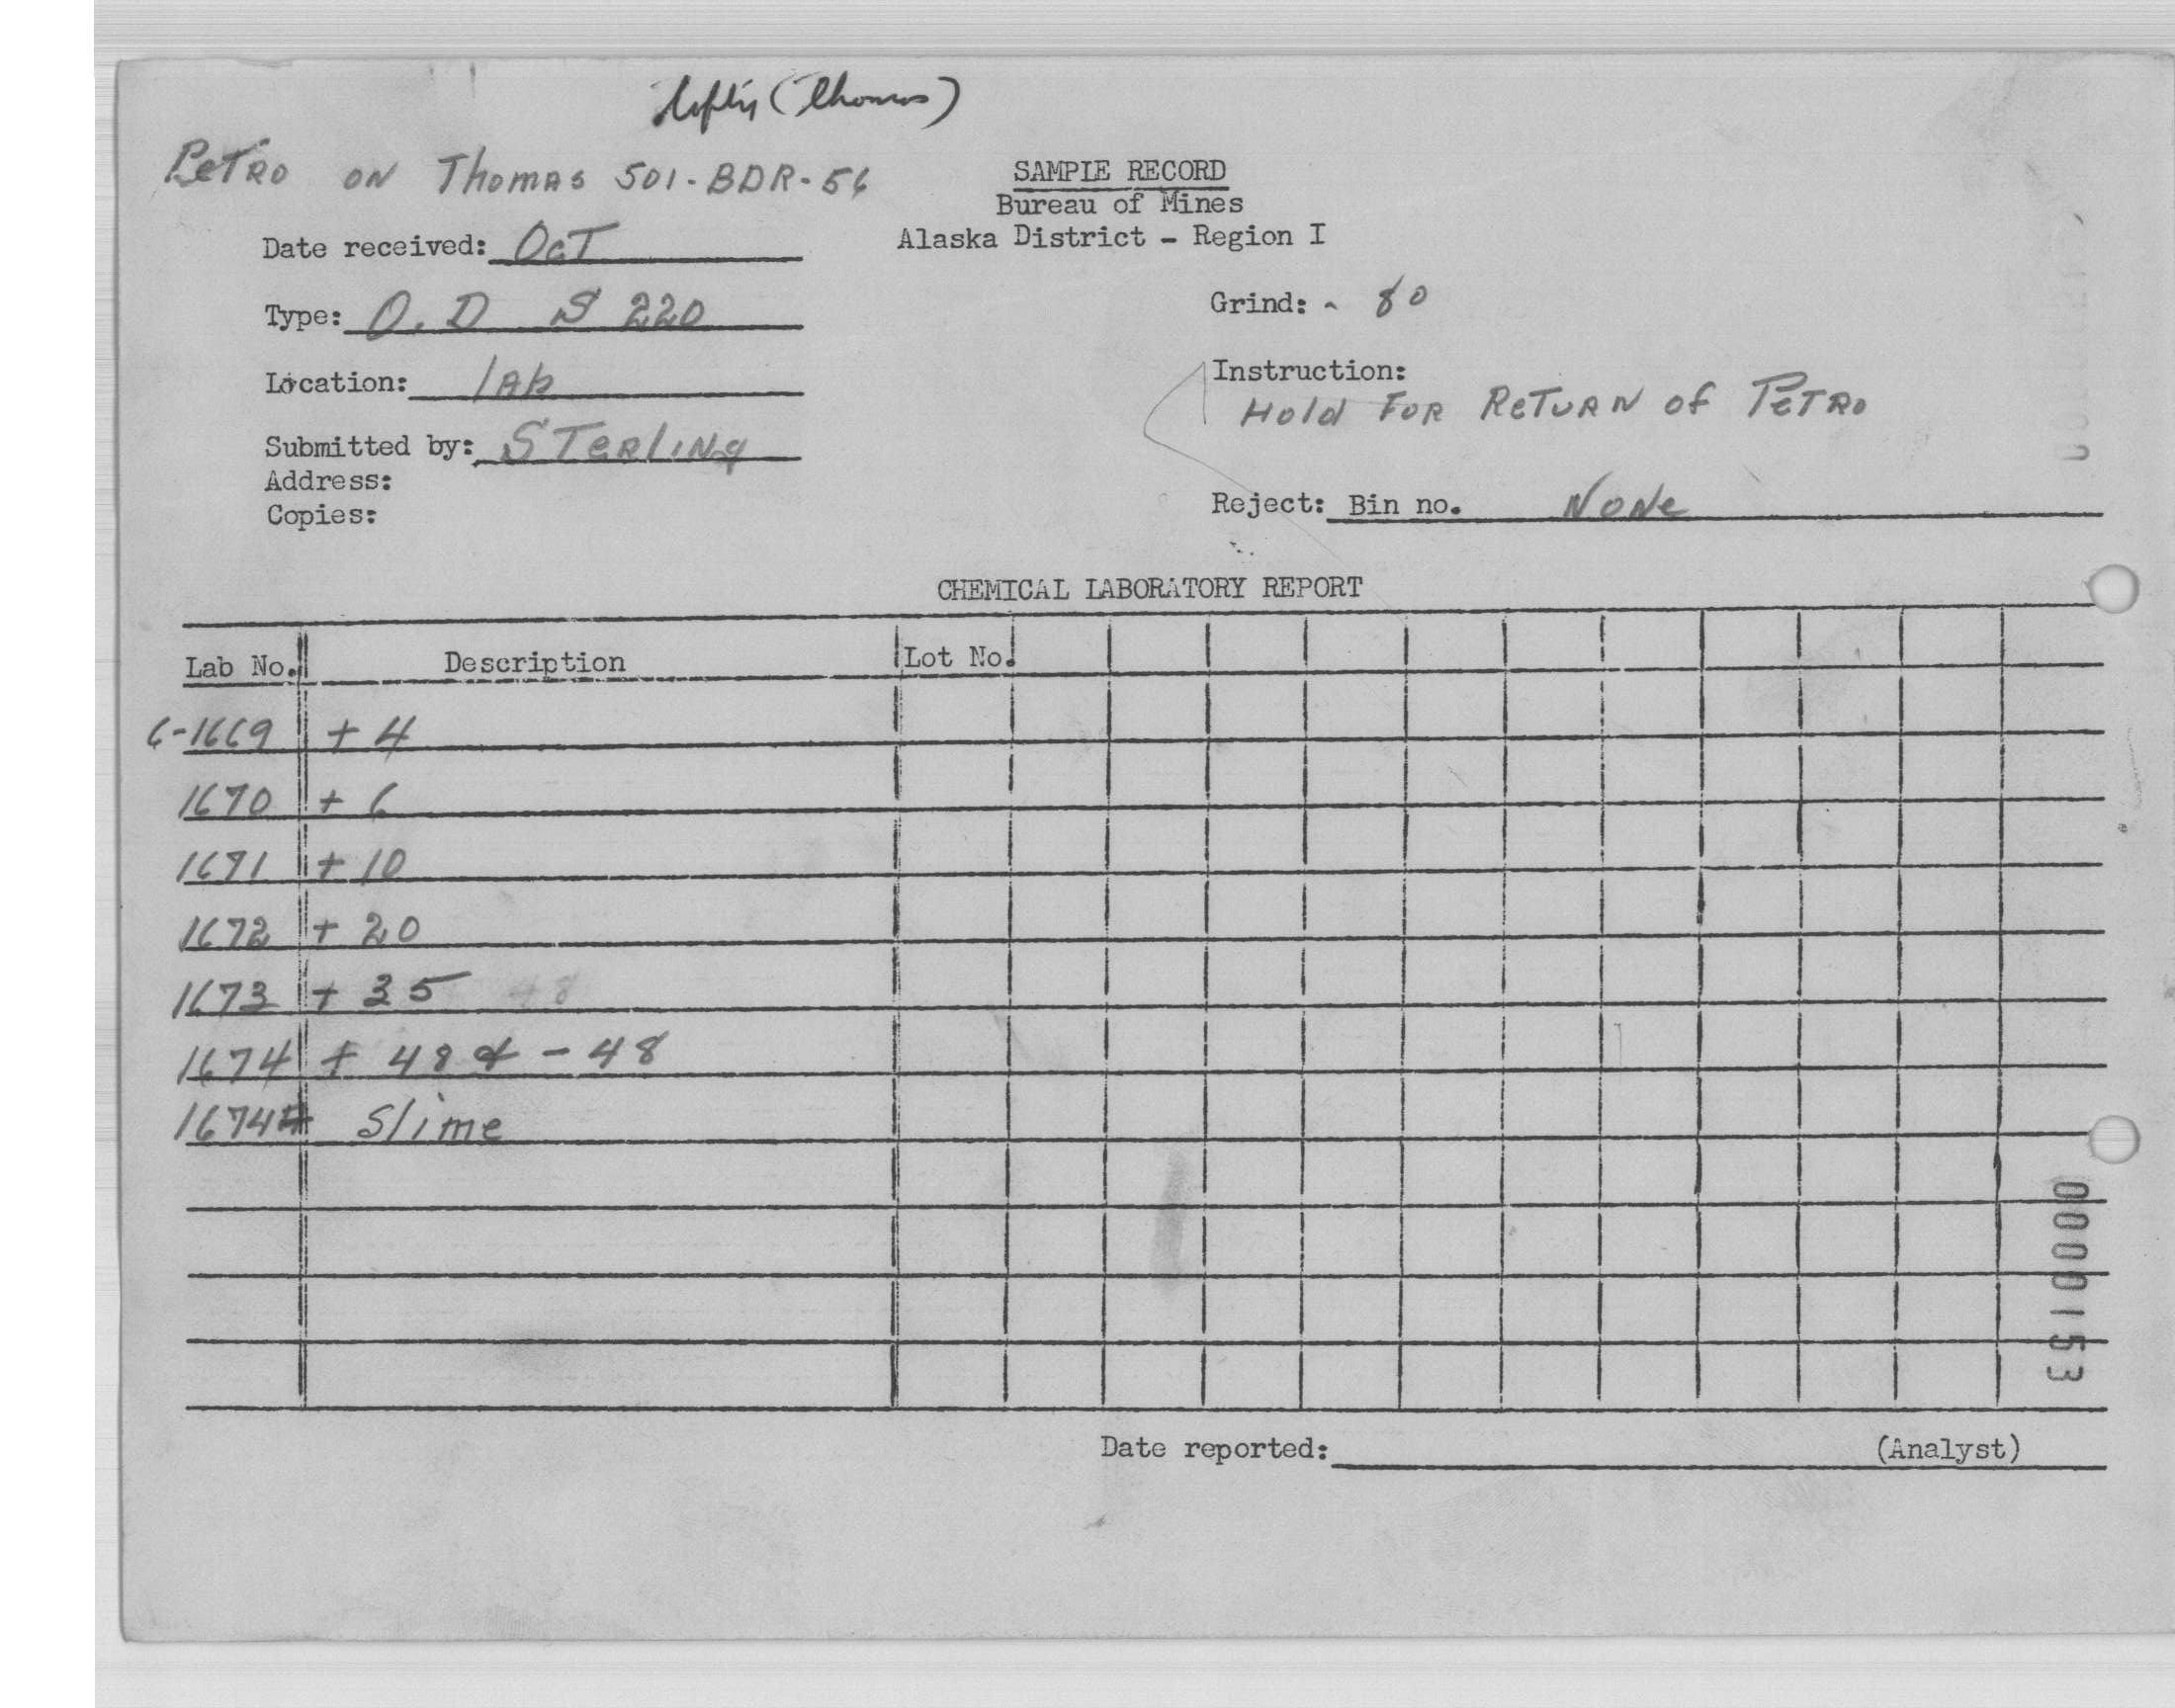 (Thomas)
Petro on Thomas 501-BDR-56
SAMPLE RECORD
Bureau of Mines
Alaska District - Region I
Date received: Oct
Type: O.D S 220
Grind: - 80
Location: lab
Instruction:
Hold for Return of Petro
Submitted by: Sterling
Address:
Copies:
Reject: Bin no. None
CHEMICAL LABORATORY REPORT
Lab No. Description Lot No.
6-1669 + 4
1670 + 6
1671 + 10
1672 + 20
1673 + 35
1674 + 48 & - 48
1674A Slime
0000153
Date reported: (Analyst)